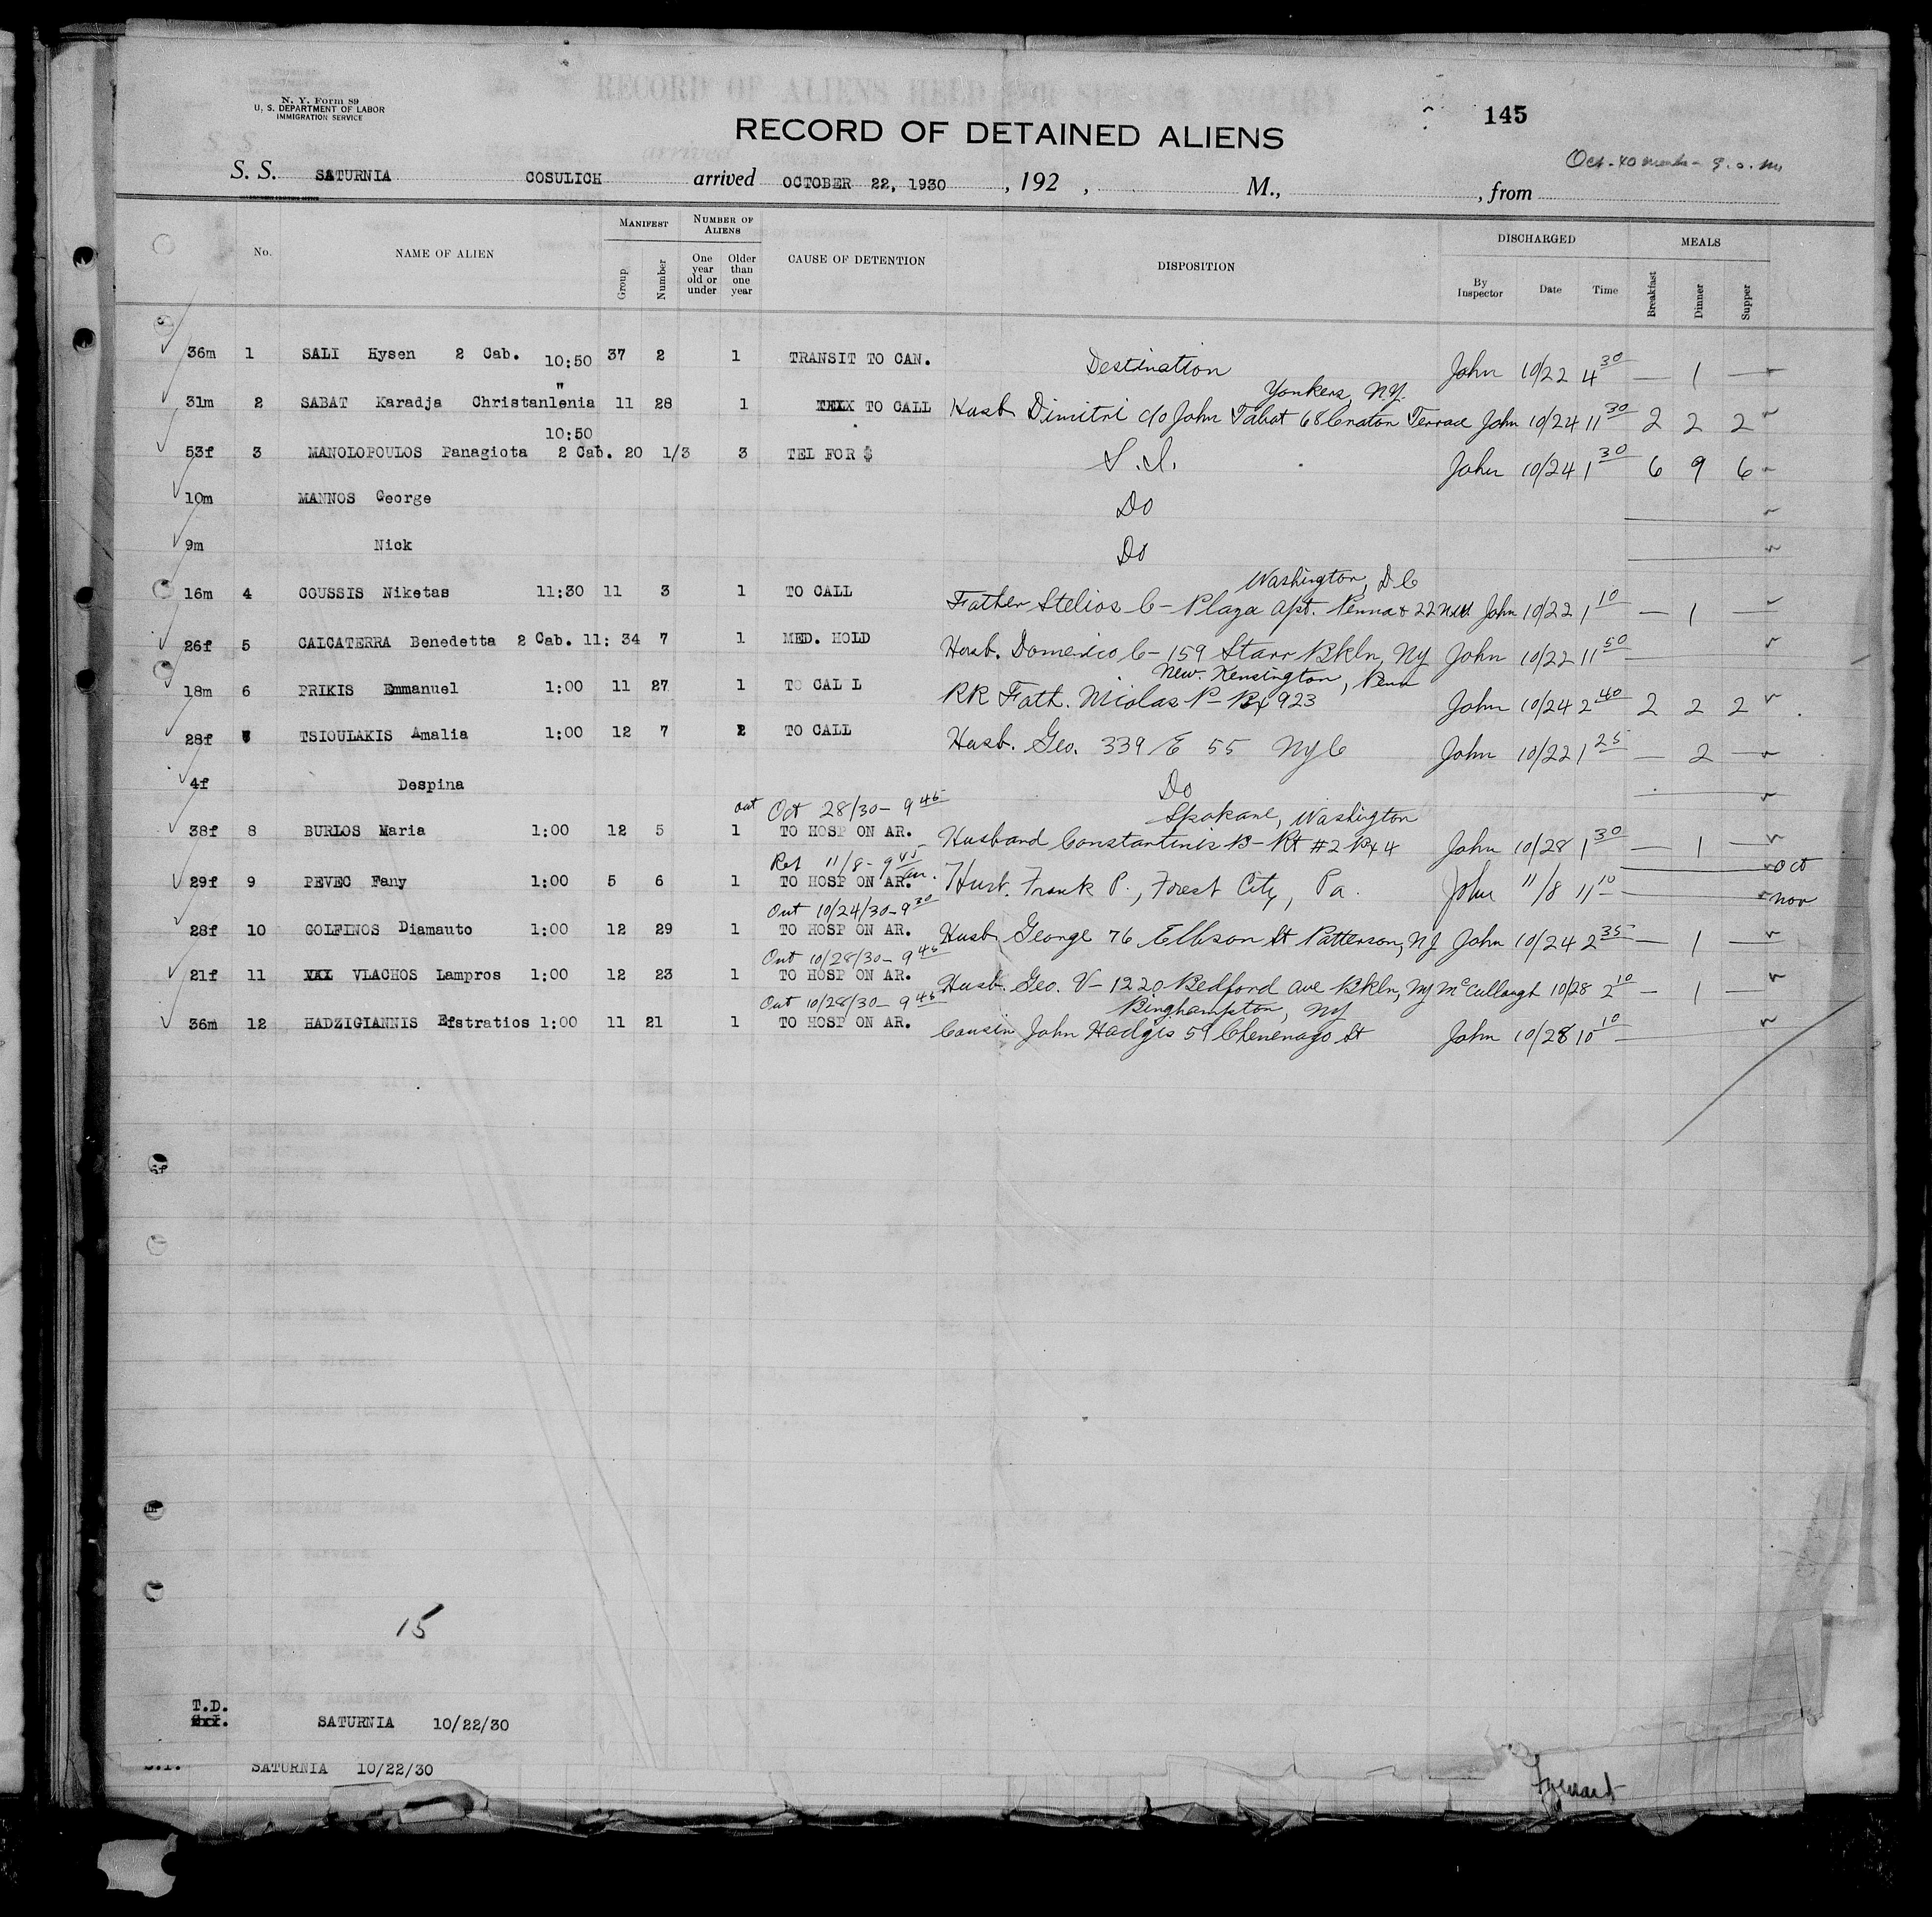 N. Y. Form 89
U. S. DEPARTMENT OF LABOR
IMMIGRATION SERVICE
145
RECORD OF DETAINED ALIENS
Oct - 40 meals -
S. S. SATURNIA COSULICH arrived OCTOBER 22, 1930, 192 , M., , from
No. NAME OF ALIEN MANIFEST Group Number NUMBER OF ALIENS One year old or under Older than one year CAUSE OF DETENTION DISPOSITION DISCHARGED By Inspector Date Time MEALS Breakfast Dinner Supper
36m 1 SALI Hysen 2 Cab. 10:50 37 2 1 TRANSIT TO CAN. Destination John 10/22 4 30 — 1 —
" Yonkers, N.Y.
31m 2 SABAT Karadja Christanlenia 11 28 1 TO CALL Husb Dimitri c/o John Tabat 68 Croton Terrace John 10/24 11 30 2 2 2
10:50
53f 3 MANOLOPOULOS Panagiota 2 Cab. 20 1/3 3 TEL FOR $ S.I. John 10/24 1 30 6 9 6
10m MANNOS George Do
9m Nick Do
Washington, D C
16m 4 COUSSIS Niketas 11:30 11 3 1 TO CALL Father Stelios C - Plaza Apt. Penna & 22 N.W. John 10/22 1 10 — 1 —
26f 5 CALCATERRA Benedetta 2 Cab. 11: 34 7 1 MED. HOLD Husb. Domenico C - 159 Starr Bkln, NY John 10/22 11 50
New Kensington, Penn
18m 6 PRIKIS Emmanuel 1:00 11 27 1 TO CALL RR Fath. Nicolas P - Bx 923 John 10/24 2 40 2 2 2
28f 7 TSIOULAKIS Amalia 1:00 12 7 2 TO CALL Husb. Geo. 339 E 55 NYC John 10/22 1 25 — 2 —
4f Despina Do
out Oct 28/30 - 9 45 Spokane, Washington
38f 8 BURLOS Maria 1:00 12 5 1 TO HOSP ON AR. Husband Constantinis B - Rt #2 Bx 4 John 10/28 1 30 — 1 —
Rel 11/8 - 9 45 am. Oct
29f 9 PEVEC Fany 1:00 5 6 1 TO HOSP ON AR. Husb. Frank P., Forest City, Pa. John 11/8 11 10 Nov
Out 10/24/30 - 9 30
28f 10 GOLFINOS Diamauto 1:00 12 29 1 TO HOSP ON AR. Husb George 76 Ellison St Patterson, NJ John 10/24 2 35 — 1 —
Out 10/28/30 - 9 45
21f 11 VLACHOS Lampros 1:00 12 23 1 TO HOSP ON AR. Husb. Geo. V - 1220 Bedford Ave Bkln, NY McCullough 10/28 2 10 — 1 —
Out 10/28/30 - 9 45 Binghampton, NY
36m 12 HADZIGIANNIS Efstratios 1:00 11 21 1 TO HOSP ON AR. Cousin John Hadgis 59 Chenenago St John 10/28 10 10
15
T.D.
SATURNIA 10/22/30
S.I. SATURNIA 10/22/30